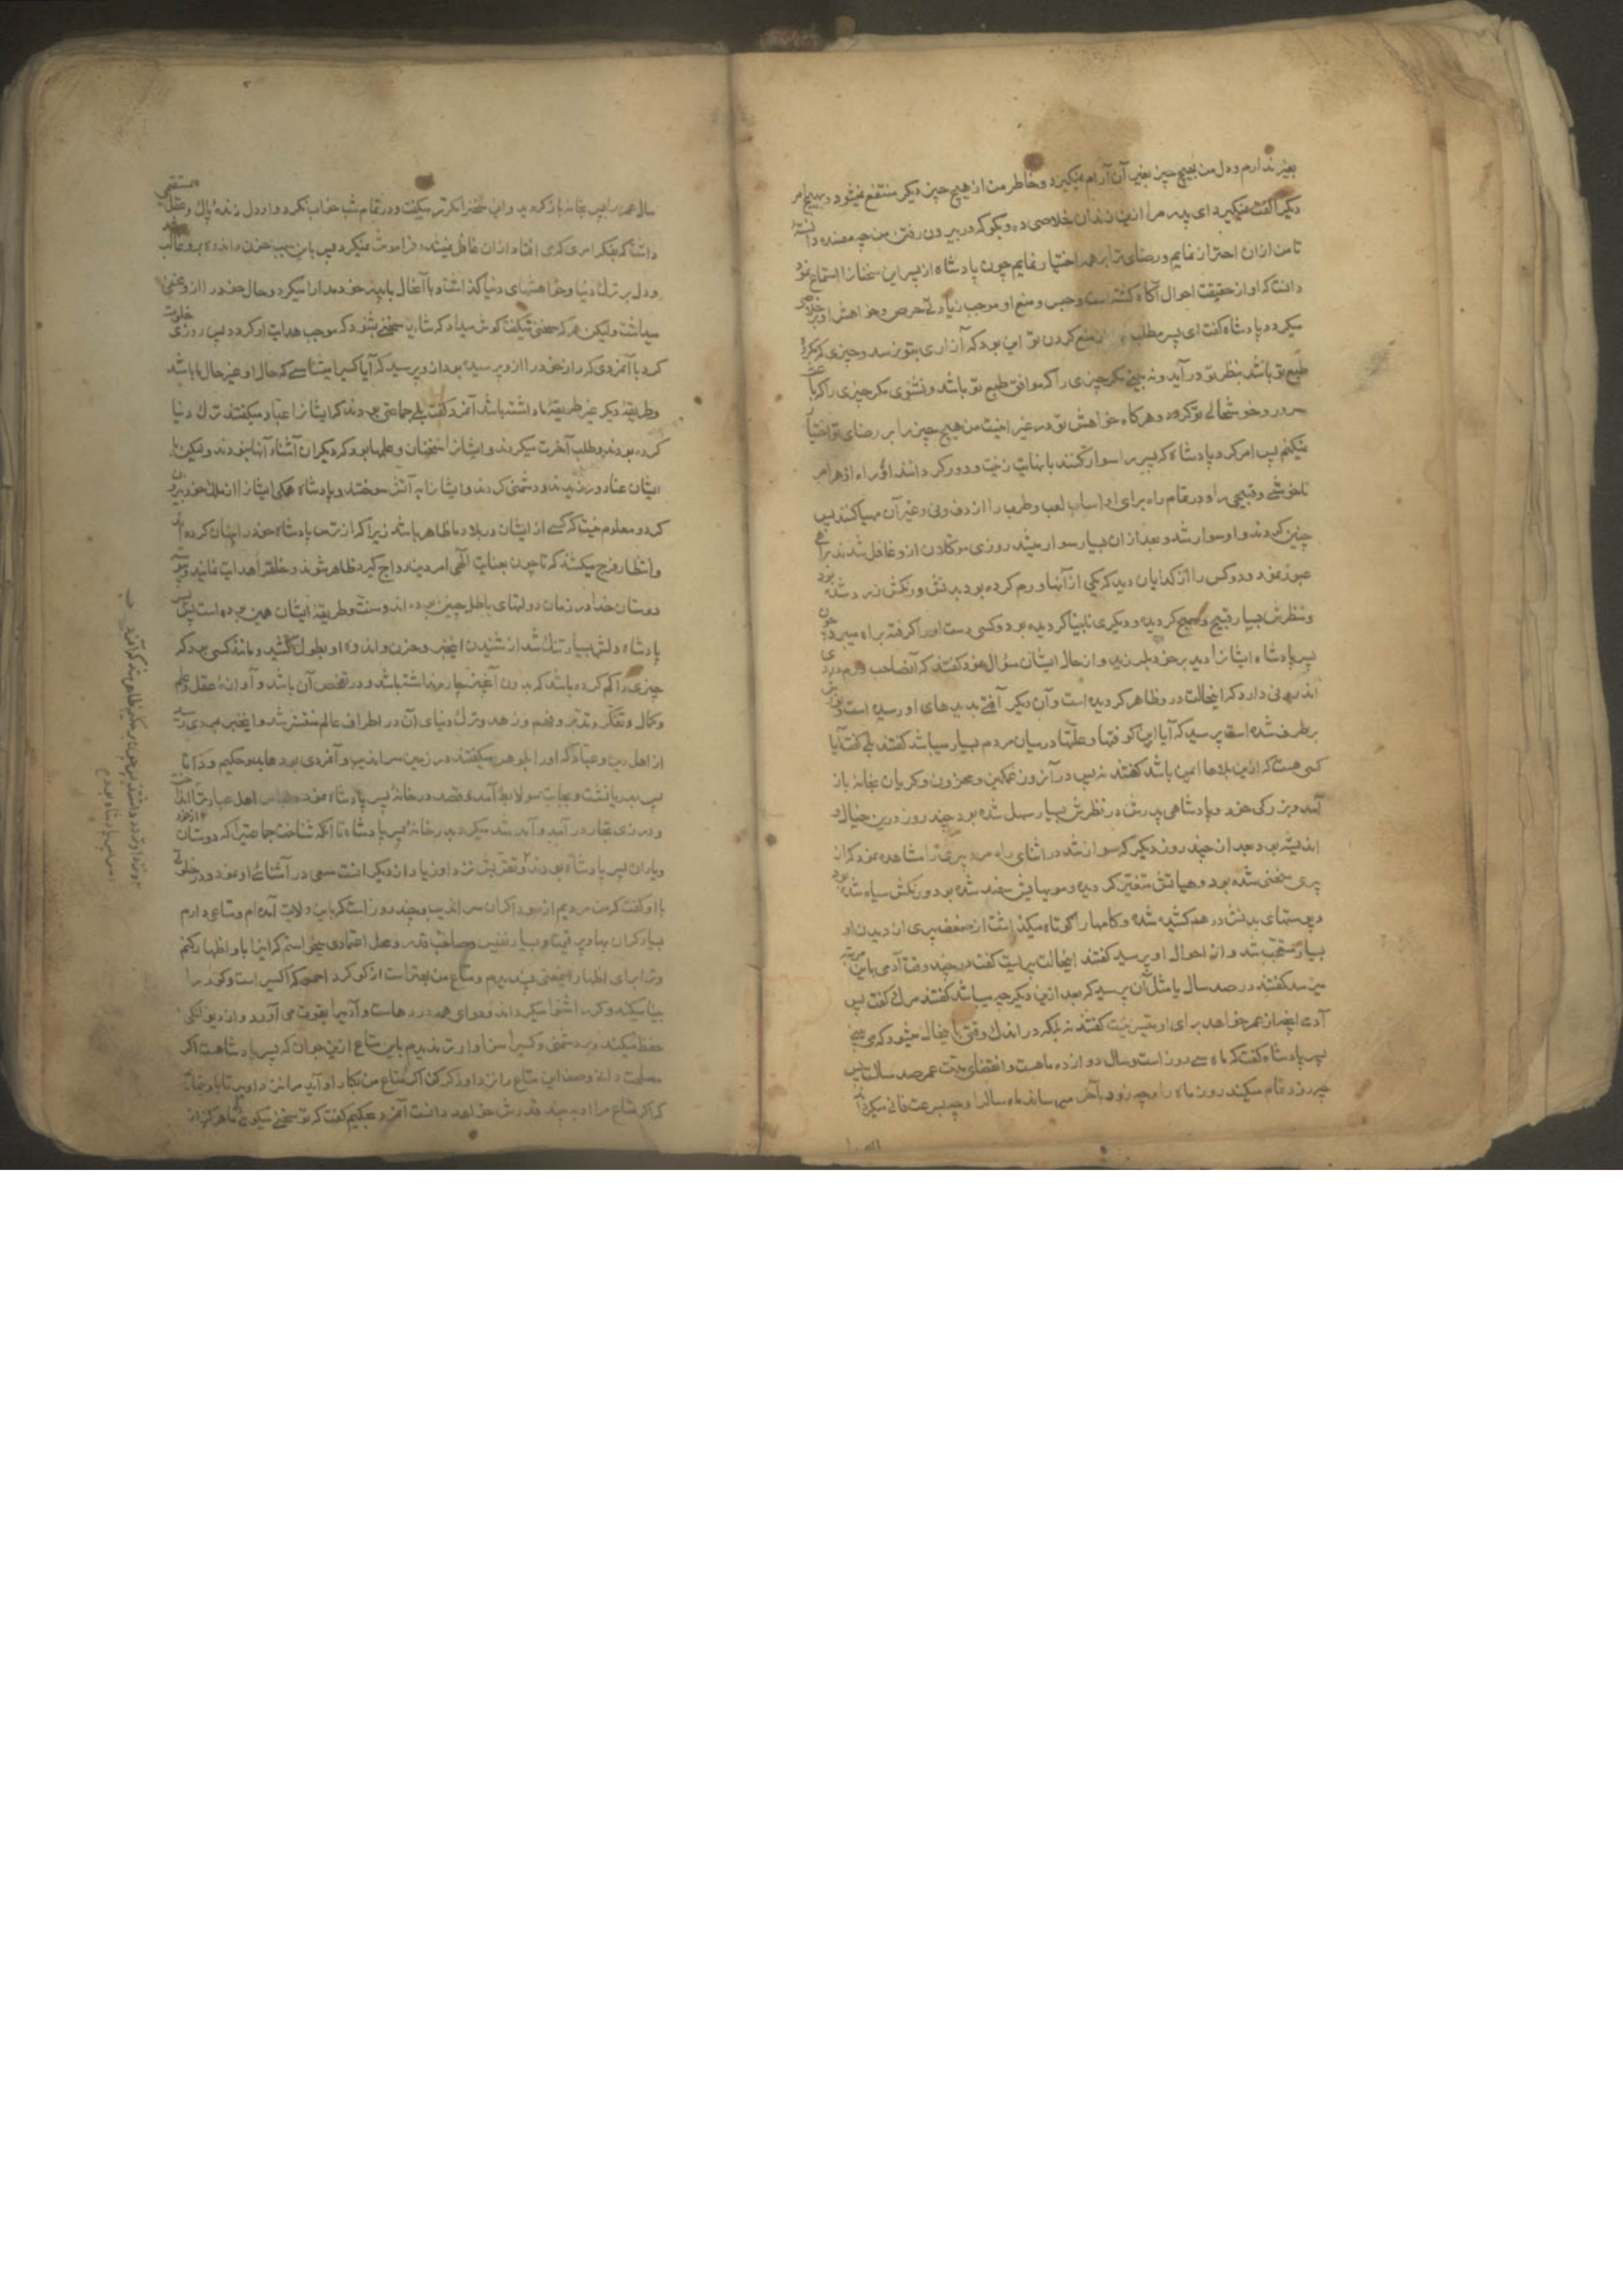 بغیر ندارم و دل من بهیچ چیز بغیر آن آرام نمیگیرد و خاطر من از هیچ چیز دیگر منتفع نمیشود و بهیچ امر
دیگر الفت نمیگیرد ای پدر مرا ازین زندان خلاصی ده و بگو که در بیرون رفتن من چه مفسده دانسته
تا من از آن احتراز نمایم و رضای ترا بر همه اختیار نمایم چون پادشاه از پسر این سخنان را استماع نمود
دانست که او از حقیقت احوال آگاه گشته است و حبس و منع او موجب زیادتی حرص و خواهش او بر خلاصی
میگردد پادشاه گفت ای پسر مطلب از منع کردن تو این بود که آزاری بتو نرسد و چیزی که مکروه
طبع تو باشد بنظر تو در نیاید و نه بینی مگر چیزی را که موافق طبع تو باشد و نشنوی مگر چیزی را که باعث
سرور و خوشحالی تو گردد و هرگاه خواهش تو در غیر اینست من هیچ چیز را بر رضای تو اختیار
نمیکنم پس امر کرد پادشاه که پسر را سوار کنند با نهایت زینت و دور گردانند از راه او هر امر
ناخوشی و قبیحی را و در تمام راه برای او اسباب لعب و طرب را از دف و نی و غیر آن مهیا کنند پس
چنین کردند و او سوار شد و بعد از آن بسیار سوار میشد روزی موکلان از و غافل شدند براهی
عبور نمود و دو کس را از گدایان دید که یکی از آنها ورم کرده بود بدنش و رنگش زرد شده بود
و منظرش بسیار قبیح گردیده و دیگری نابینا گردیده بود و کسی دست او را گرفته براه میبرد چون
پسر پادشاه ایشان را دید بر خود بلرزید و از حال ایشان سؤال نمود گفتند که آن صاحب ورم دردی
اندرونی دارد که اینحالت درو ظاهر گردیده است و آن دیگر آفتی بدیدهای او رسیده است و نورش
برطرف شده است پرسید که آیا این کوفتها و علتها در میان مردم بسیار میباشد گفتند بلی گفت آیا
کسی هست که ازین بلاها ایمن باشد گفتند نه پس در آنروز غمگین و محزون و گریان بخانه باز
آمد و بزرگی خود و پادشاهی پدرش در نظرش بسیار سهل شده بود چند روز درین خیال و
اندیشه بود بعد از چند روز دیگر که سوار شد در اثنای راه مرد پیری را مشاهده نمود که از
پیری منحنی شده بود و هیأتش متغیر گردیده و موهایش سفید شده بود و رنگش سیاه شده بود
و پوستهای بدنش در هم کشیده شده و گامها را کوتاه میگذاشت از ضعف پیری از دیدن او
بسیار متعجب شد و از احوال او پرسید گفتند اینحالت پیریست گفت در چند وقت آدمی باین مرتبه
میرسد گفتند در صد سال یا مثل آن پرسید که بعد ازین دیگر چه میباشد گفتند مرگ گفت پس
آدمی آنچه از عمر خواهد برای او میسر نیست گفتند نه بلکه در اندک وقتی باینحال میشود که می بینی
پسر پادشاه گفت که ماه سی روز است و سال دوازده ماهست و انقضای مدت عمر صد سالست پس
چه زود تمام میکند روز ماه را و چه زود بآخر میرساند ماه سال را و چه بسرعت فانی میگرداند
سال عمر را پس بخانه باز گردید و این سخن را مکرر میگفت و در تمام شب خواب نکرد و او دل زنده پاک و عقل مستقیمی
داشت که بفکر امری که می افتاد از آن غافل نمیشد و فراموش نمیکرد پس باین سبب حزن و اندوه برو غالب شد
و دل بر ترک دنیا و خواهشهای دنیا گذاشت و با آنحال با پدر خود مدارا میکرد و حال خود را از و مخفی
میداشت ولیکن هر که سخنی میگفت گوش میداد که شاید سخنی بشنود که موجب هدایت او گردد پس روزی خلوت
کرد با آنمردی که راز خود را از و پرسیده بود از و پرسید که آیا کسی را میشناسی که حال او غیر حال ما باشد
و طریقه دیگر غیر طریقه ما داشته باشد آنمرد گفت بلی جماعتی بودند که ایشان را عباد میگفتند ترک دنیا
کرده بودند و طلب آخرت میکردند و ایشان را سخنان و علمها بود که دیگران آشنای آنها نبودند ولیکن با
ایشان عناد ورزیدند و دشمنی کردند و ایشان را به آتش سوختند و پادشاه همگی ایشان را از ملک خود بیرون
کرد و معلوم نیست که کسی از ایشان در بلاد ما ظاهر باشد زیرا که از ترس پادشاه خود را پنهان کرده اند
و انتظار فرج میکشند که تا چون بعنایت الهی امر دین رواج گیرد ظاهر شوند و خلق را هدایت نمایند و پیوسته
دوستان خدا در زمان دولتهای باطل چنین بوده اند و سنت و طریقه ایشان همین بوده است پس پسر
پادشاه دلش بسیار تنگ شد از شنیدن اینخبر و حزن و اندوه او بطول کشید و مانند کسی بود که
چیزی را گم کرده باشد که بدون آنچیز چاره نداشته باشد و در تفحص آن باشد و آوازه عقل و علم
و کمال و تفکر و تدبر و فهم و زهد و ترک دنیای آن در اطراف عالم منتشر شد و اینخبر بمردی رسید
از اهل دین و عباد که او را بلوهر میگفتند در زمین سراندیب و آنمردی بود عابد و حکیم و دانا
پس بدریا نشست و بجانب سولابط آمد و قصد در خانه پسر پادشاه نمود لباس اهل عبادت را انداخت
و در زی تجار در آمد و آمد شد میکرد بدر خانه پسر پادشاه تا آنکه شناخت جماعتی را که دوستان
و یاران پسر پادشاه بودند و تقربش نزد او زیاد از دیگرانست سعی در آشنائی او نمود و در خلوتی
با او گفت که من مردیم از سوداگران سراندیب و چند روز است که باین ولایت آمده ام و متاعی دارم
بسیار گران بها و پر قیمت و بسیار نفیس و صاحب قدر و محل اعتمادی میخواستم که اینرا باو اظهار کنم
و ترا برای اظهار اینمعنی پسندیدم و متاع من بهتر است از گوگرد احمر که اکسیر است و کور را
بینا میکند و کر را شنوا میگرداند و دوای همه دردهاست و آدمی را بقوت می آورد و از دیوانگی
حفظ میکند و بر دشمنی و کسی را سزاوارتر ندیدم باین متاع ازین جوان که پسر پادشاهست اگر
مصلحت دانی وصف این متاع را نزد او ذکر کن اگر متاع من بکار او آید مرا نزد او ببر تا باو بنمایم
که اگر متاع مرا ببیند قدرش خواهد دانست آنمرد بحکیم گفت که تو سخنی میگوئی که ما هرگز از